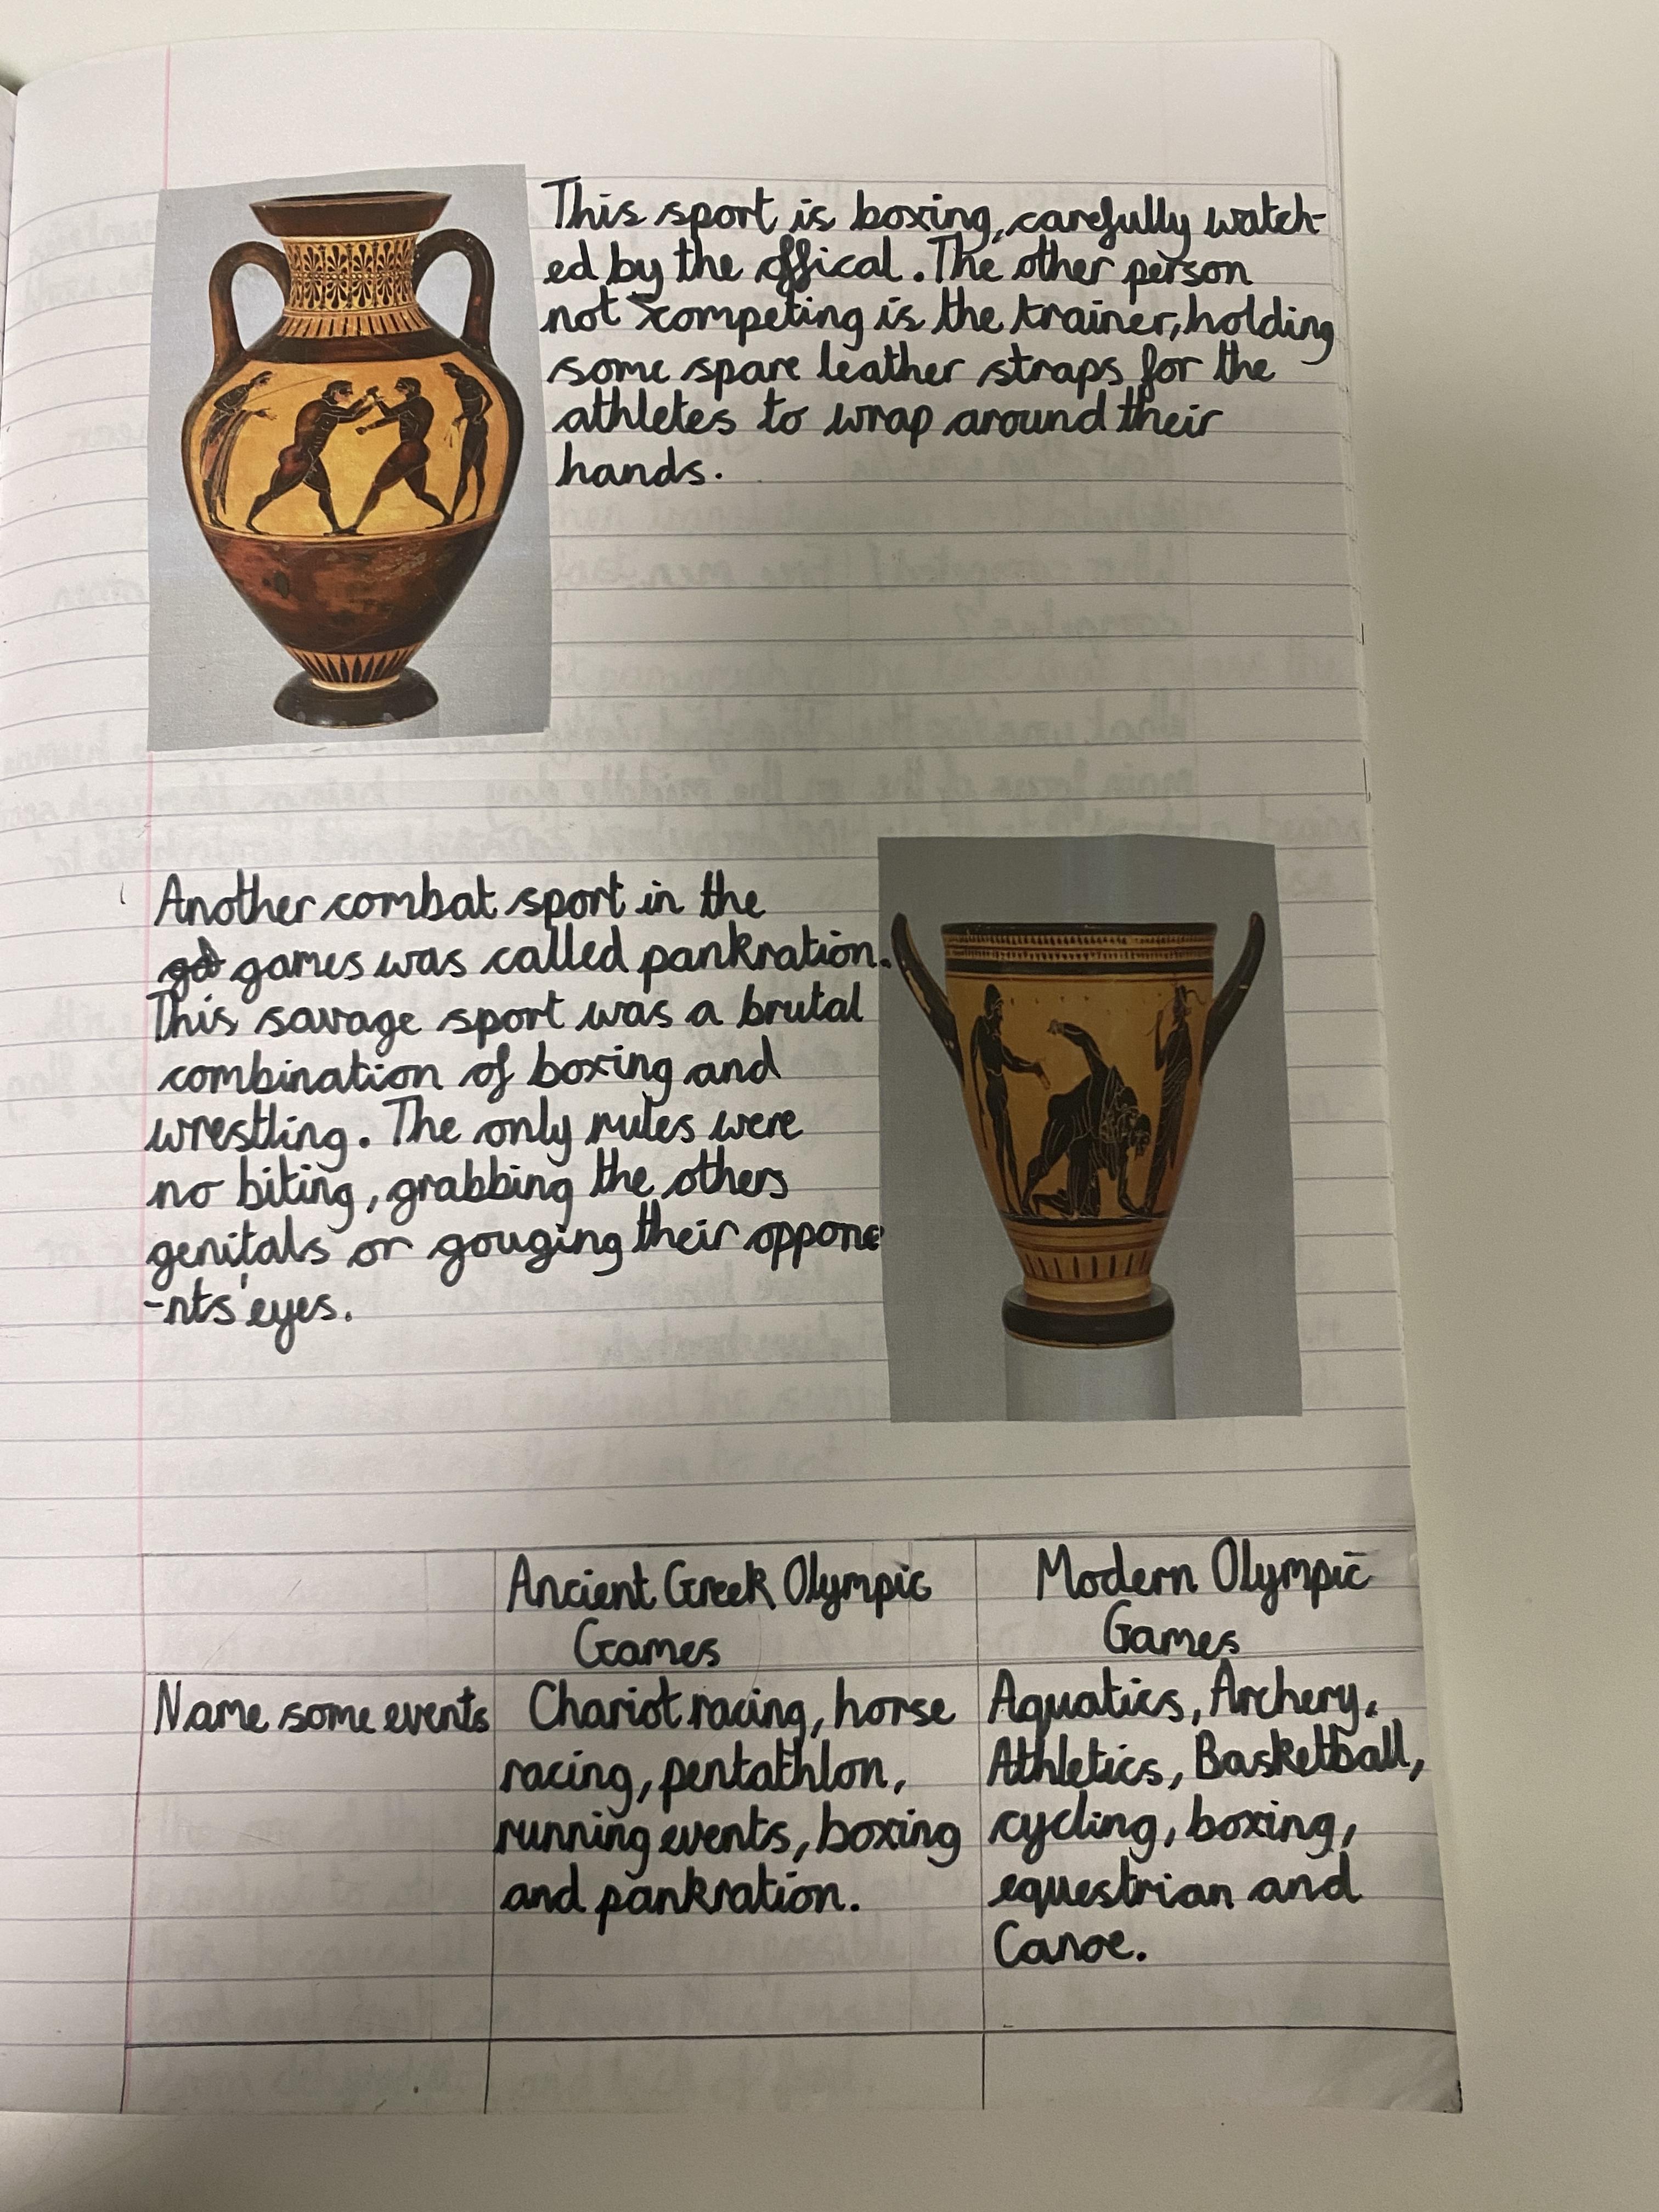 This sport is boxing, carefully watch-
ed by the offical. The other person
not competing is the trainer, holding
some spare leather straps for the
athletes to wrap around their
hands.
Another combat sport in the
games was called pankration.
This savage sport was a brutal
combination of boxing and
wrestling. The only rules were
no biting, grabbing the others
genitals or gouging their oppone
-nts' eyes.
Ancient Greek Olympic
Games
Modern Olympic
Games
Name some events
Chariot racing, horse
racing, pentathlon,
running events, boxing
and pankration.
Aquatics, Archery,
Athletics, Basketball,
cycling, boxing,
equestrian and
Canoe.